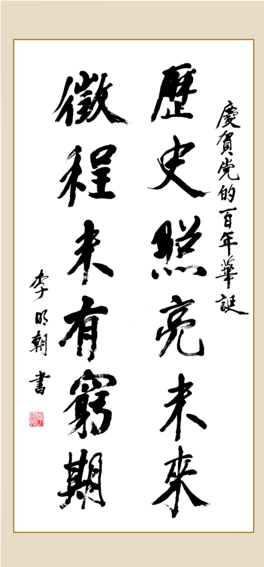 慶賀党的百年華誕
歷史照亮未來
徵程未有窮期
李明朝書